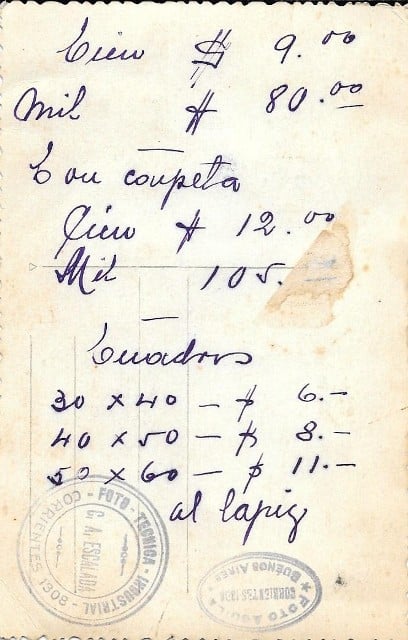 Cien $ 9.00
Mil $ 80.00
Con carpeta
Cien $ 12.00
Mil 105.
Cuadros
30 x 40 - $ 6.-
40 x 50 - $ 8.-
50 x 60 - $ 11.-
al lapiz
FOTO - TECNICA - INDUSTRIAL
CORRIENTES
C. A. ESCALADA
BUENOS AIRES
CORRIENTES
FOTO